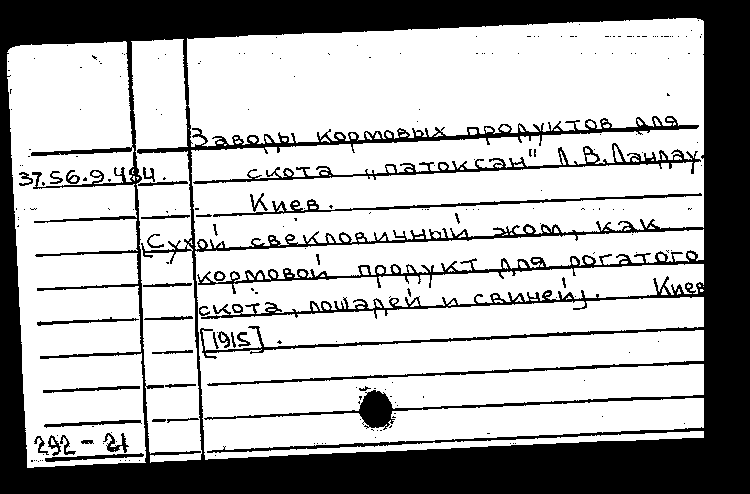 Заводы кормовых продуктов для
37.56.9.484. скота „патоксан" Л.В.Ландау.
Киев.
[Сухой свекловичный жом, как
кормовой продукт для рогатого
скота, лошадей и свиней]. Киев
[1915].
292 - 21